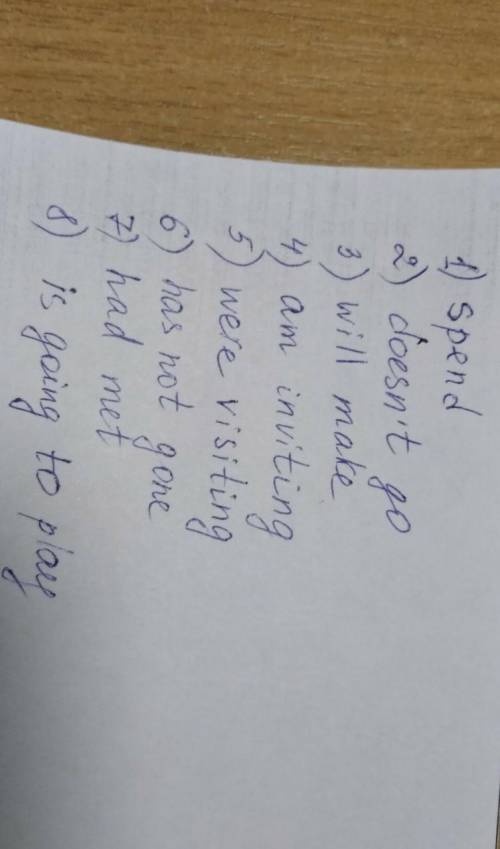 1) spend
2) doesn't go
3) will make
4) am inviting
5) were visiting
6) has not gone
7) had met
8) is going to play